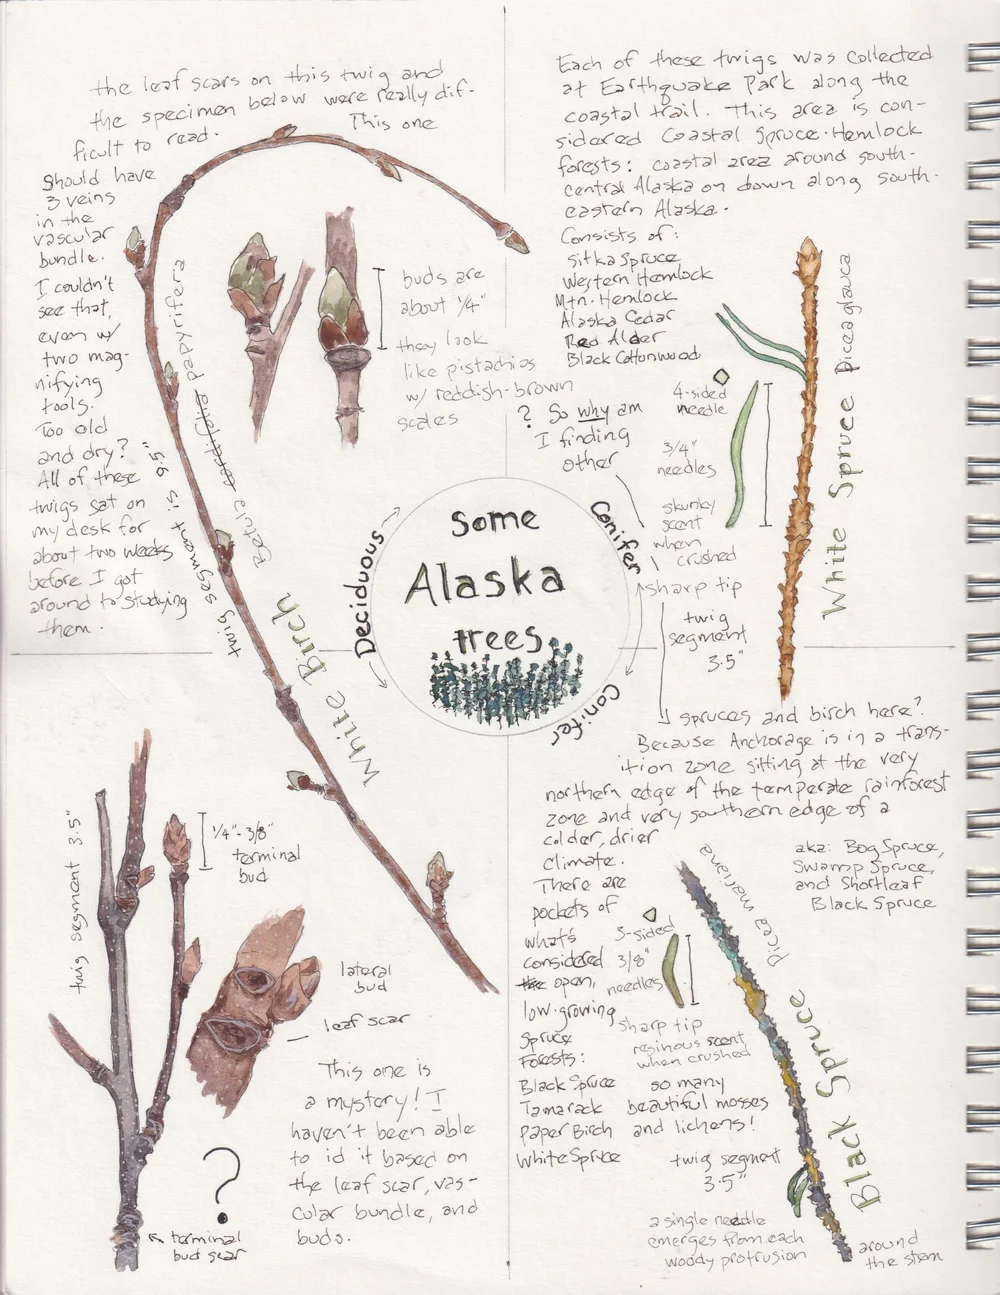 the leaf scars on this twig and
the specimen below were really dif-
ficult to read.
This one
should have
3 veins
in the
vascular
bundle.
I couldn't
see that,
even w/
two mag-
nifying
tools.
Too old
and dry?
All of these
twigs sat on
my desk for
about two weeks
before I got
around to studying
them.
twig segment is 9.5"
Betula cordifolia papyrifera
White Birch
buds are
about 1/4"
they look
like pistachios
w/ reddish-brown
scales
Each of these twigs was collected
at Earthquake Park along the
coastal trail. This area is con-
sidered Coastal Spruce-Hemlock
forests: coastal area around south-
central Alaska on down along south-
eastern Alaska.
Consists of:
Sitka Spruce
Western Hemlock
Mtn. Hemlock
Alaska Cedar
Red Alder
Black Cottonwood
? So why am
I finding
other
4-sided
needle
3/4"
needles
skunky
scent
when
crushed
sharp tip
twig
segment
3.5"
White Spruce Picea glauca
Deciduous
Conifer
Conifer
Some
Alaska
trees
spruces and birch here?
Because Anchorage is in a trans-
ition zone sitting at the very
northern edge of the temperate rainforest
zone and very southern edge of a
colder, drier
climate.
There are
pockets of
what's
considered
the open,
low-growing
Spruce
Forests:
Black Spruce
Tamarack
Paper Birch
White Spruce
aka: Bog Spruce,
Swamp Spruce,
and Shortleaf
Black Spruce
3-sided
3/8"
needles
sharp tip
resinous scent
when crushed
so many
beautiful mosses
and lichens!
twig segment
3.5"
Picea mariana
Black Spruce
a single needle
emerges from each
woody protrusion
around
the stem
twig segment 3.5"
1/4"-3/8"
terminal
bud
lateral
bud
leaf scar
This one is
a mystery! I
haven't been able
to id it based on
the leaf scar, vas-
cular bundle, and
buds.
?
terminal
bud scar